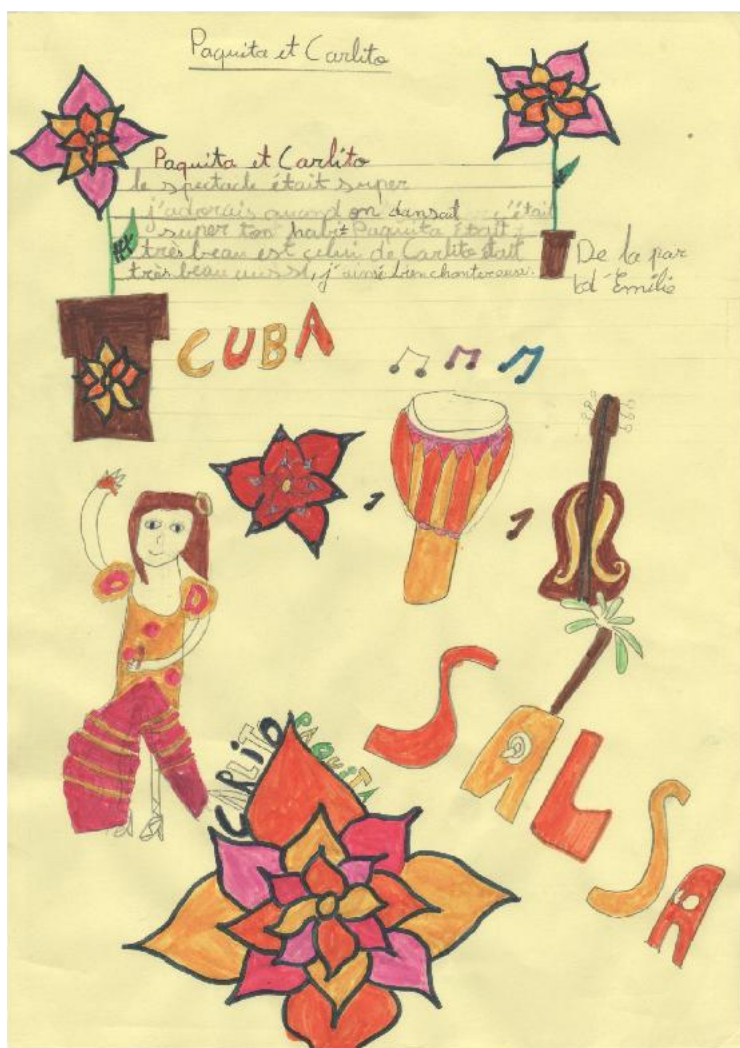 Paquita et Carlito
Paquita et Carlito
le spectacle était super
j'adorais quand on dansait c'était
super ton habit Paquita Était
très beau est celui de Carlito était
très beau aussi, j'aime bien
De la par
td'Emilie
CUBA
SALSA
CARLITO PAQUITA